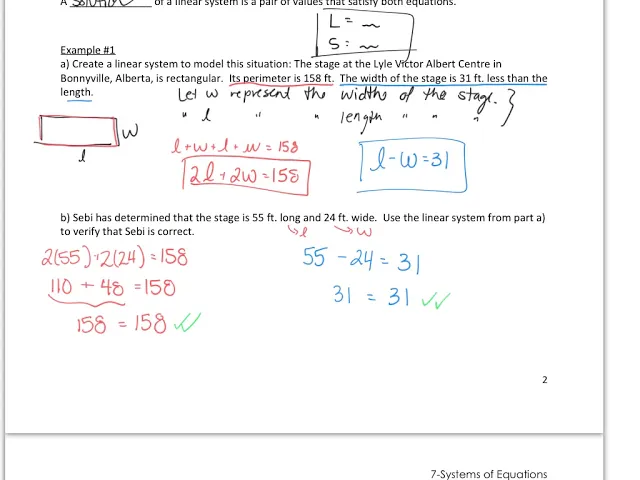 A SOLUTION of a linear system is a pair of values that satisfy both equations.
L = ~
S = ~
Example #1
a) Create a linear system to model this situation: The stage at the Lyle Victor Albert Centre in
Bonnyville, Alberta, is rectangular. Its perimeter is 158 ft. The width of the stage is 31 ft. less than the
length.
Let w represent the widths of the stage.
" l " " length " " "
w
l
l + w + l + w = 158
2l + 2w = 158
l - w = 31
b) Sebi has determined that the stage is 55 ft. long and 24 ft. wide. Use the linear system from part a)
to verify that Sebi is correct.
l
w
2(55) + 2(24) = 158
110 + 48 = 158
158 = 158 ✓✓
55 - 24 = 31
31 = 31 ✓✓
2
7-Systems of Equations